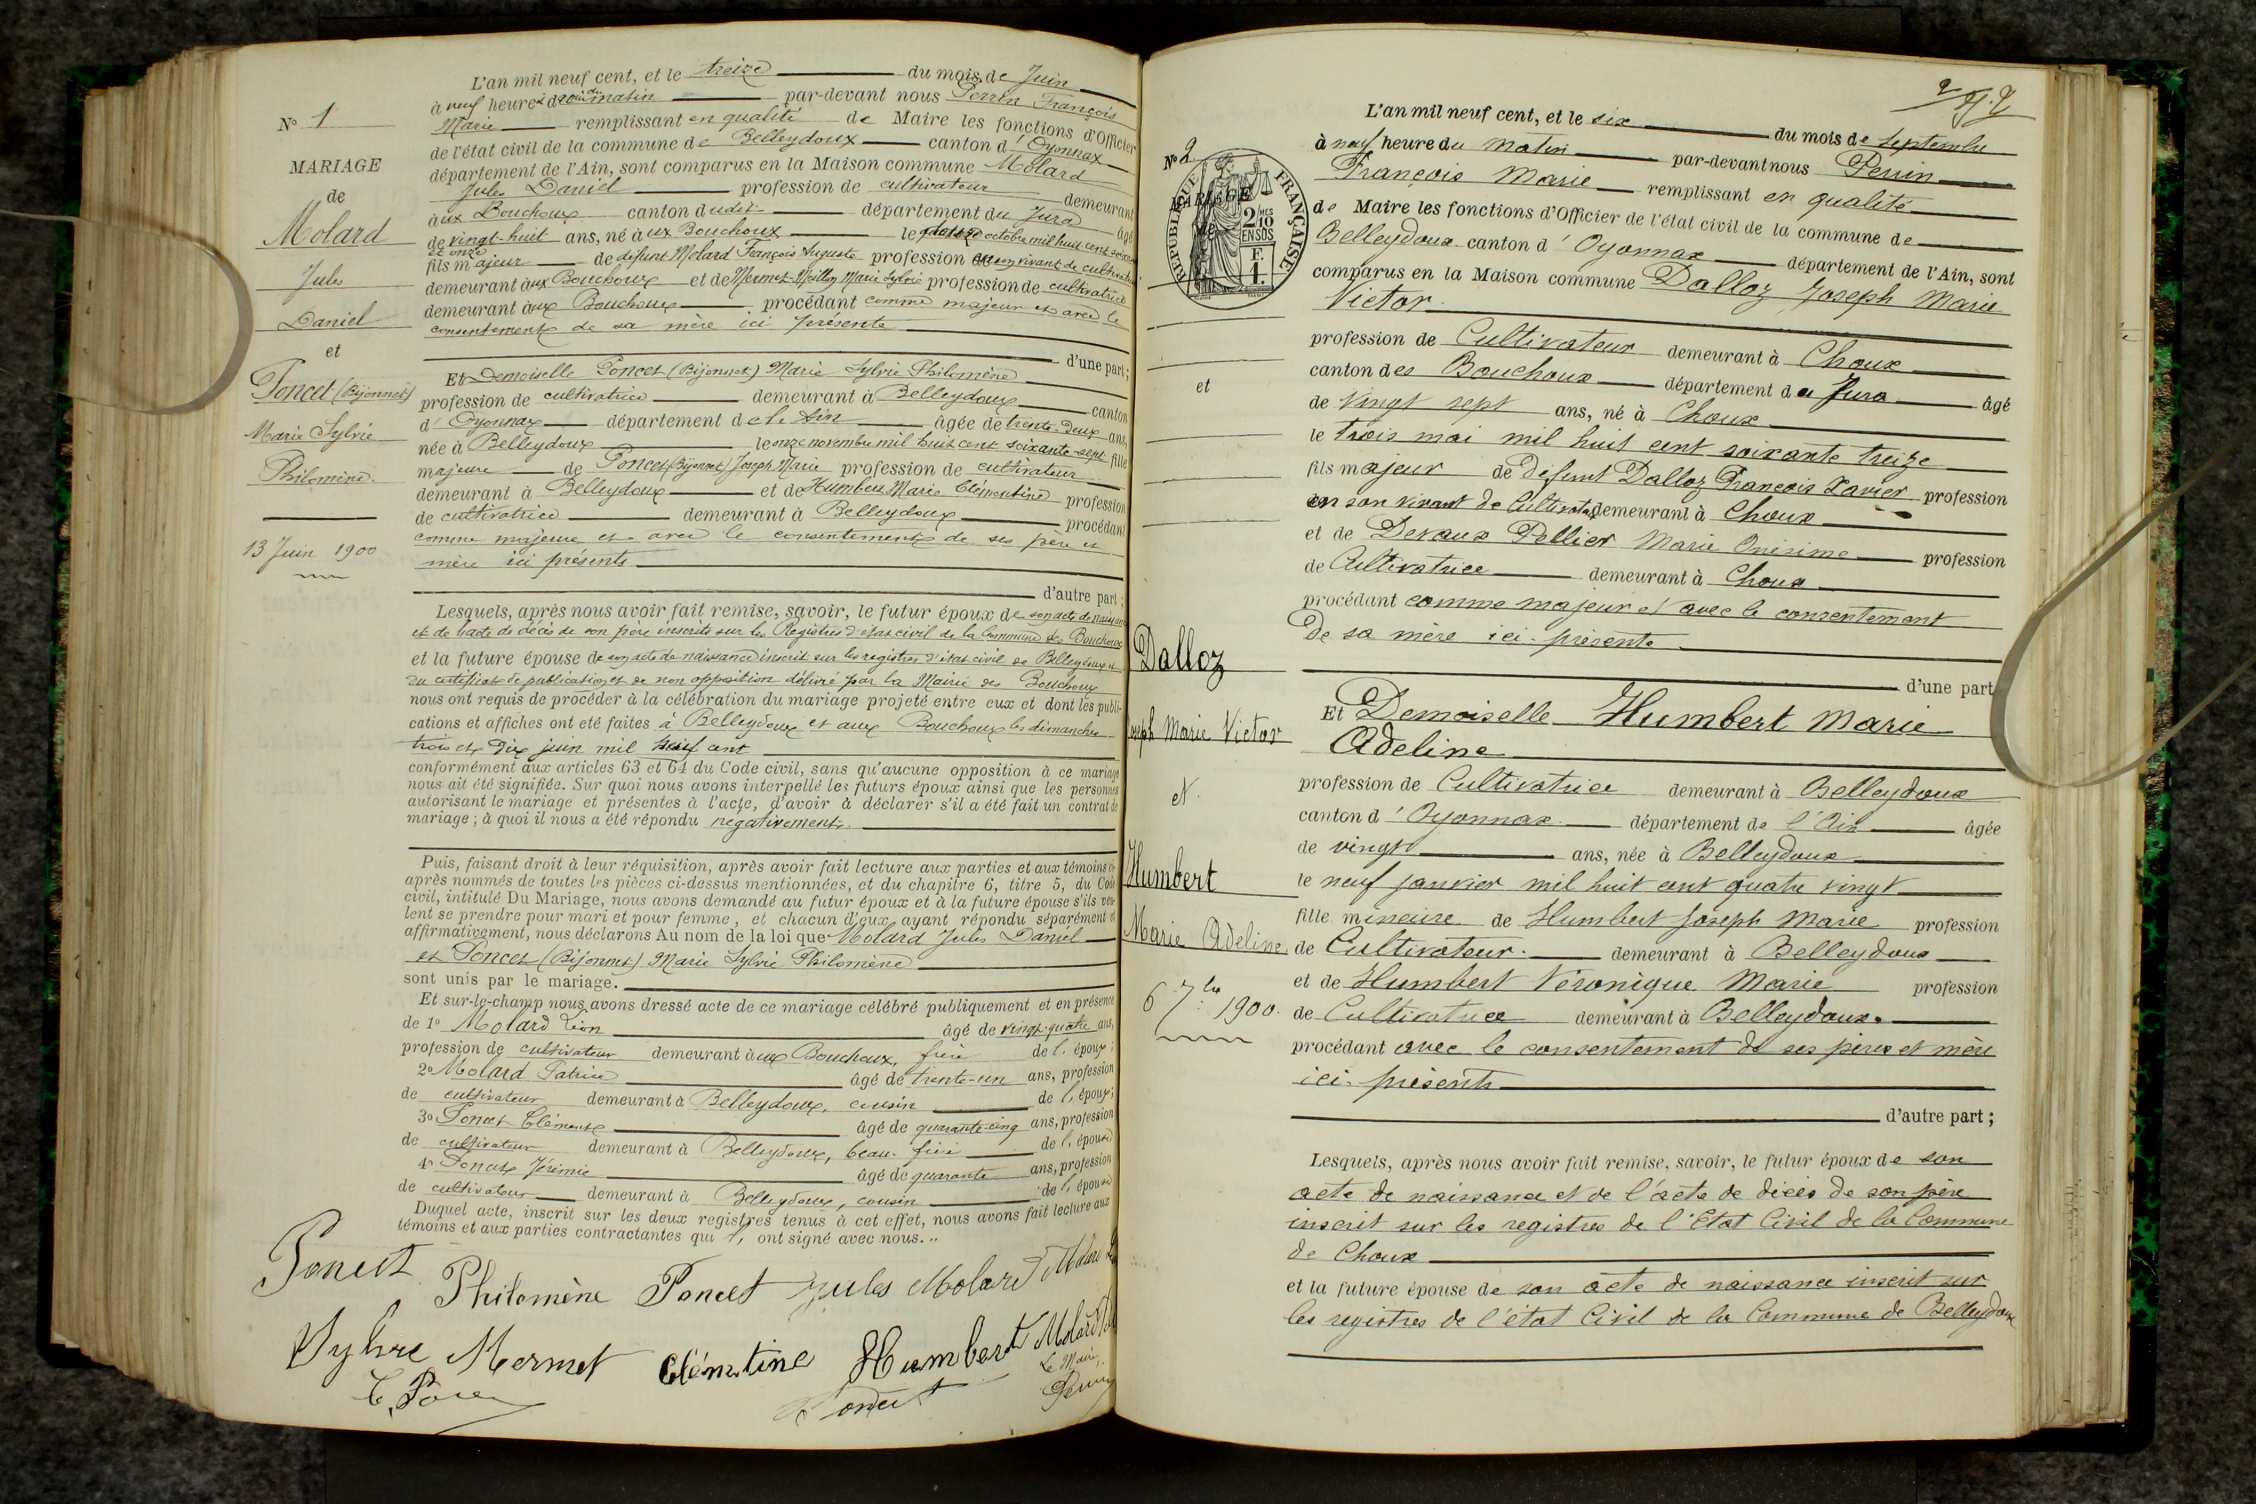 N° 1
MARIAGE
de
Molard
Jules
Daniel
et
Poncet (Bijonnet)
Marie Sylvie
Philomène.
13 Juin 1900
L'an mil neuf cent, et le treize du mois de Juin
à neuf heures du matin par-devant nous Perrin François
Marie remplissant en qualité de Maire les fonctions d'Officier
de l'état civil de la commune de Belleydoux canton d'Oyonnax
département de l'Ain, sont comparus en la Maison commune Molard
Jules Daniel profession de cultivateur demeurant
aux Bouchoux canton dudit département du Jura âgé
de vingt-huit ans, né aux Bouchoux le octobre mil huit cent soixante
et onze
fils majeur de défunt Molard François Auguste profession en son vivant de cultivateur
demeurant aux Bouchoux et de Mermet Marie Sylvie profession de cultivatrice
demeurant aux Bouchoux procédant comme majeur et avec le
consentement de sa mère ici présente
d'une part;
Et Demoiselle Poncet (Bijonnet) Marie Sylvie Philomène
profession de cultivatrice demeurant à Belleydoux canton
d'Oyonnax département de l'Ain âgée de trente-deux ans,
née à Belleydoux le onze novembre mil huit cent soixante-sept fille
majeure de Poncet (Bijonnet) Joseph Marie profession de cultivateur
demeurant à Belleydoux et de Humbert Marie Clémentine profession
de cultivatrice demeurant à Belleydoux procédant
comme majeure et avec le consentement de ses père et
mère ici présents
d'autre part;
Lesquels, après nous avoir fait remise, savoir, le futur époux de son acte de naissance
et de l'acte de décès de son père inscrits sur les Registres d'état civil de la Commune des Bouchoux
et la future épouse de son acte de naissance inscrit sur les registres d'état civil de Belleydoux et
du certificat de publication et de non opposition délivré par la Mairie des Bouchoux
nous ont requis de procéder à la célébration du mariage projeté entre eux et dont les publi-
cations et affiches ont été faites à Belleydoux et aux Bouchoux les dimanches
trois et dix juin mil neuf cent
conformément aux articles 63 et 64 du Code civil, sans qu'aucune opposition à ce mariage
nous ait été signifiée. Sur quoi nous avons interpellé les futurs époux ainsi que les personnes
autorisant le mariage et présentes à l'acte, d'avoir à déclarer s'il a été fait un contrat de
mariage; à quoi il nous a été répondu négativement.
Puis, faisant droit à leur réquisition, après avoir fait lecture aux parties et aux témoins ci-
après nommés de toutes les pièces ci-dessus mentionnées, et du chapitre 6, titre 5, du Code
civil, intitulé Du Mariage, nous avons demandé au futur époux et à la future épouse s'ils veu-
lent se prendre pour mari et pour femme, et chacun d'eux, ayant répondu séparément et
affirmativement, nous déclarons Au nom de la loi que Molard Jules Daniel
et Poncet (Bijonnet) Marie Sylvie Philomène
sont unis par le mariage.
Et sur-le-champ nous avons dressé acte de ce mariage célébré publiquement et en présence
de 1° Molard Léon âgé de vingt-quatre ans,
profession de cultivateur demeurant aux Bouchoux, frère de l'époux;
2° Molard Patrice âgé de trente-un ans, profession
de cultivateur demeurant à Belleydoux, cousin de l'époux;
3° Poncet Clément âgé de quarante-cinq ans, profession
de cultivateur demeurant à Belleydoux, beau-frère de l'épouse
4° Poncet Jérémie âgé de quarante ans, profession
de cultivateur demeurant à Belleydoux, cousin de l'épouse
Duquel acte, inscrit sur les deux registres tenus à cet effet, nous avons fait lecture aux
témoins et aux parties contractantes qui ont signé avec nous.
Poncet Philomène Poncet Jules Molard
Sylvie Mermet Clémentine Humbert Molard
Le Maire
C. Poncet Poncet Perrin
2
N° 2
MARIAGE
de
RÉPUBLIQUE FRANÇAISE
2/10 EN SUS
F. 1.
et
Dalloz
Joseph Marie Victor
et
Humbert
Marie Adeline
6 7bre 1900.
L'an mil neuf cent, et le six du mois de Septembre
à neuf heure du matin par-devant nous Perrin
François Marie remplissant en qualité
de Maire les fonctions d'Officier de l'état civil de la commune de
Belleydoux canton d'Oyonnax département de l'Ain, sont
comparus en la Maison commune Dalloz Joseph Marie
Victor
profession de Cultivateur demeurant à Choux
canton des Bouchoux département du Jura âgé
de vingt sept ans, né à Choux
le trois mai mil huit cent soixante treize
fils majeur de défunt Dalloz François Xavier profession
en son vivant de Cultivateur demeurant à Choux
et de Devaux Pellier Marie Onésime profession
de Cultivatrice demeurant à Choux
procédant comme majeur et avec le consentement
de sa mère ici présente
d'une part
Et Demoiselle Humbert Marie
Adeline
profession de Cultivatrice demeurant à Belleydoux
canton d'Oyonnax département de l'Ain âgée
de vingt ans, née à Belleydoux
le neuf janvier mil huit cent quatre vingt
fille mineure de Humbert Joseph Marie profession
de Cultivateur demeurant à Belleydoux
et de Humbert Véronique Marie profession
de Cultivatrice demeurant à Belleydoux.
procédant avec le consentement de ses père et mère
ici présents
d'autre part;
Lesquels, après nous avoir fait remise, savoir, le futur époux de son
acte de naissance et de l'acte de décès de son père
inscrit sur les registres de l'Etat Civil de la Commune
de Choux
et la future épouse de son acte de naissance inscrit sur
les registres de l'état Civil de la Commune de Belleydoux